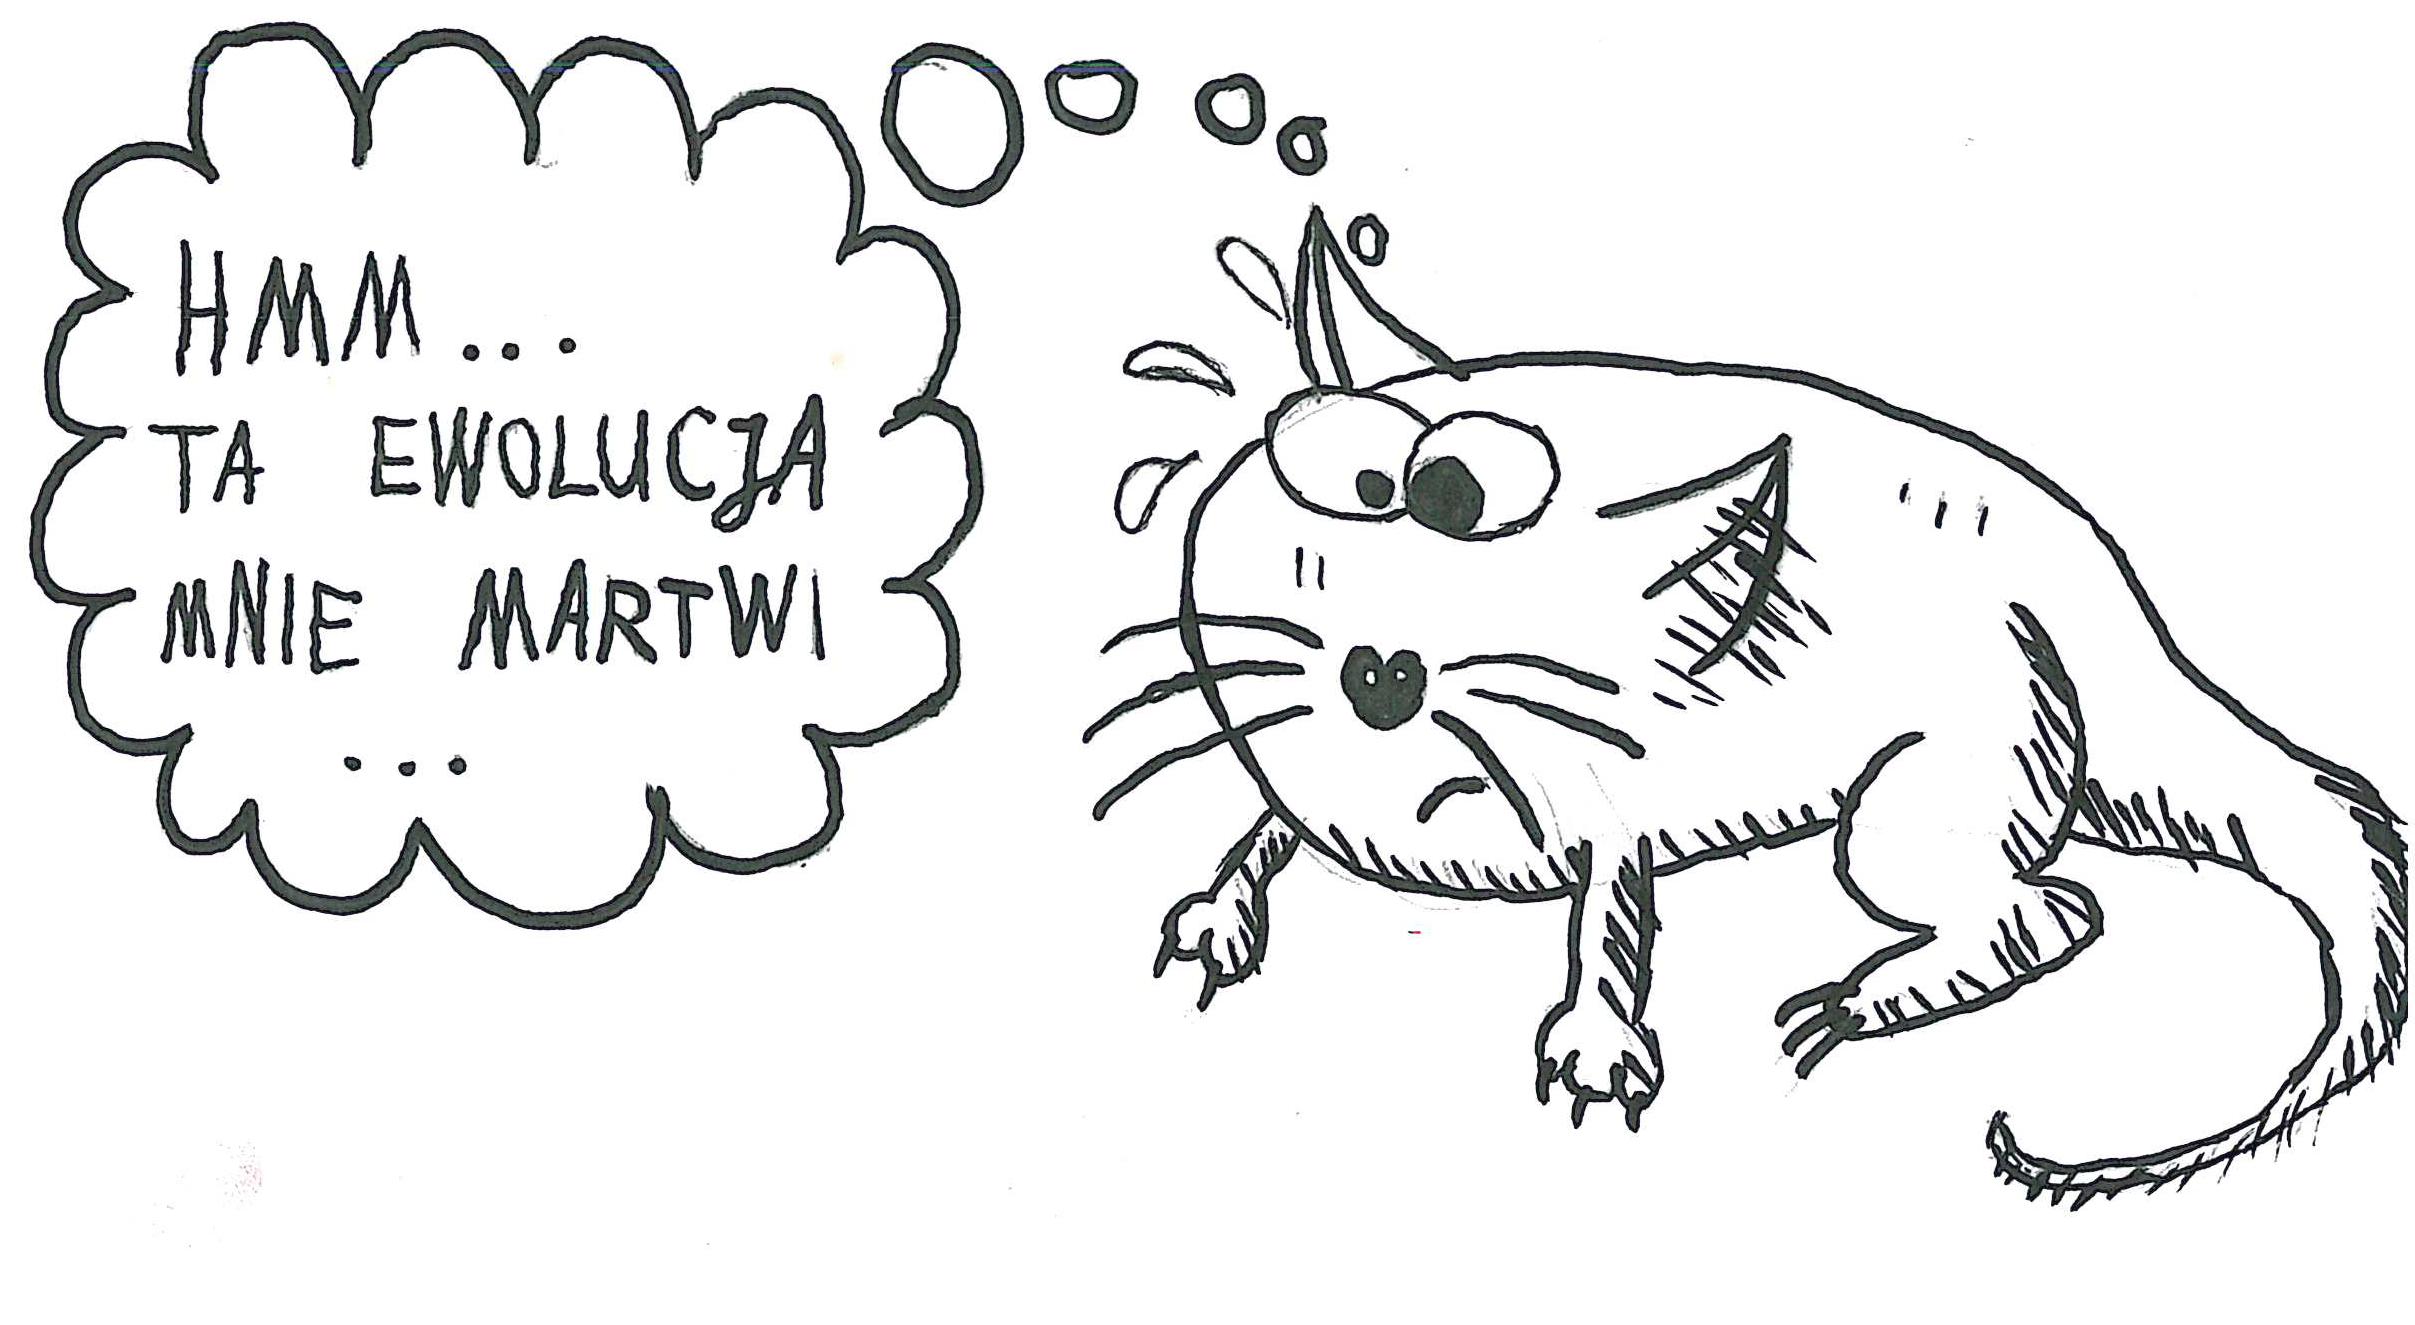 HMM...
TA EWOLUCJA
MNIE MARTWI
...